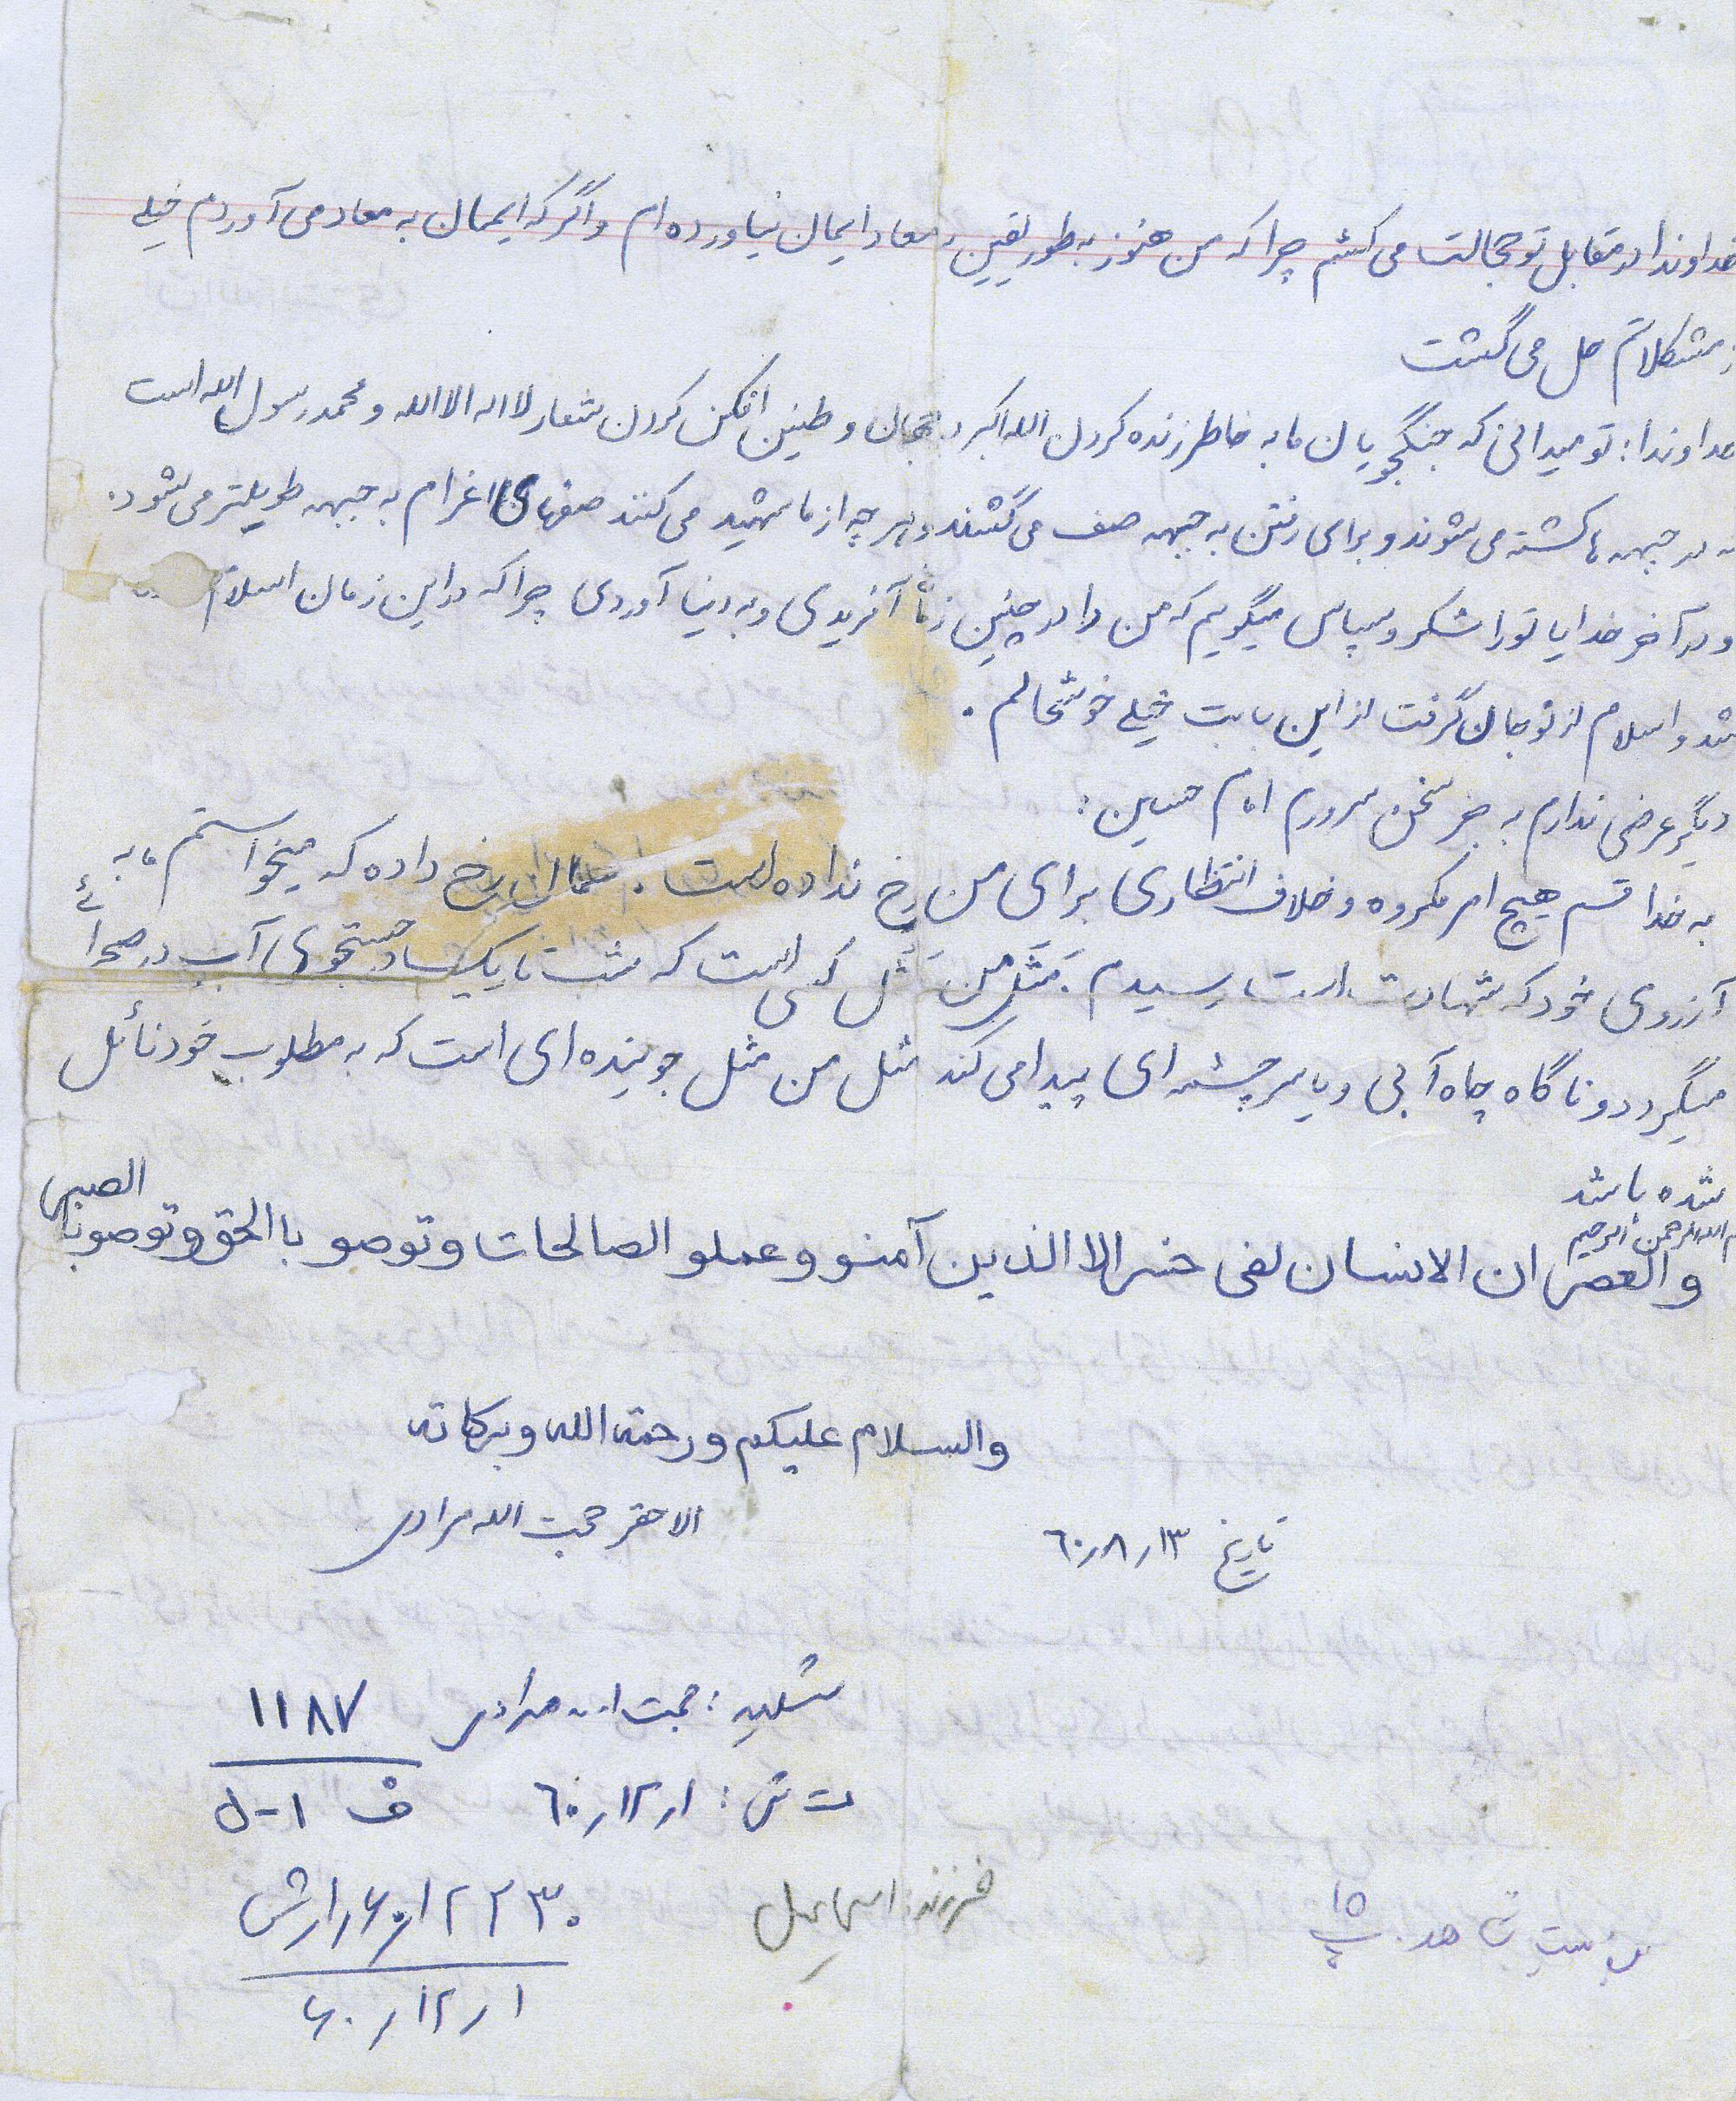 خداوندا در مقابل تو خجالت می کشم چرا که من هنوز به طور یقین به معاد ایمان نیاورده ام و اگر که ایمان به معاد می آوردم خیلی
مشکلاتم حل می گشت
خداوندا: تو میدانی که جنگجویان ما به خاطر زنده کردن الله اکبر در جهان و طنین افکن کردن شعار لا اله الا الله و محمد رسول الله است
که در جبهه ها کشته می شوند و برای رفتن به جبهه صف می گشند و هر چه از ما شهید می کنند صفهای اغرام به جبهه طویلتر می شود.
و در آخر خدایا تو را شکر و سپاس میگویم که من را در چنین زمانی آفریدی و به دنیا آوردی چرا که در این زمان اسلام
شد و اسلام از نو جان گرفت از این بابت خیلی خوشحالم.
دیگر عرضی ندارم به جز سخن سرورم امام حسین:
به خدا قسم هیچ امر مکروه و خلاف انتظاری برای من رخ نداده است. همان رخ داده که میخواستم ما به
آرزوی خود که شهادت است رسیدم. مَثَل من مَثَل کسی است که شب تاریک در جستجوی آب در صحرائی
میگردد و ناگاه چاه آبی و یا سرچشمه ای پیدا می کند مثل من مثل جوینده ای است که به مطلوب خود نائل
شده باشد
بسم الله الرحمن الرحیم
والعصر ان الانسان لفی خسر الا الذین آمنو و عملو الصالحات و توصو با الحق و توصو با الصبر
والسلام علیکم و رحمته الله و برکاته
الاحقر حجت الله مرادی
تاریخ ۶۰/۸/۱۳
شهید: حجت اله مرادی ۱۱۸۷
ت ش: ۶۰/۱۲/۱ ف ۱-۵
فرزند: اسماعیل
۶۰/۱۲/۱